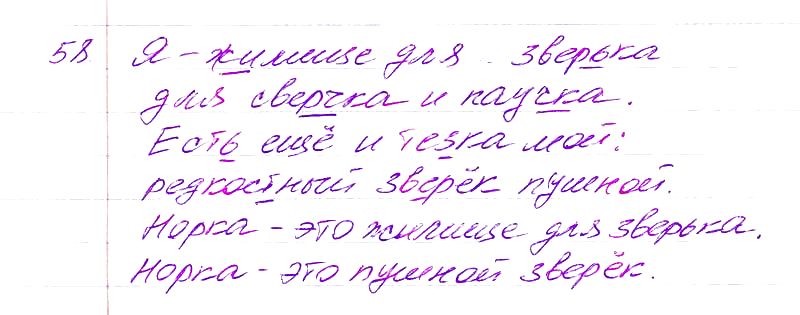 58 Я - жилище для зверька
для сверчка и паучка.
Есть ещё и тезка мой:
редкостный зверёк пушной.
Норка - это жилище для зверька.
Норка - это пушной зверёк.